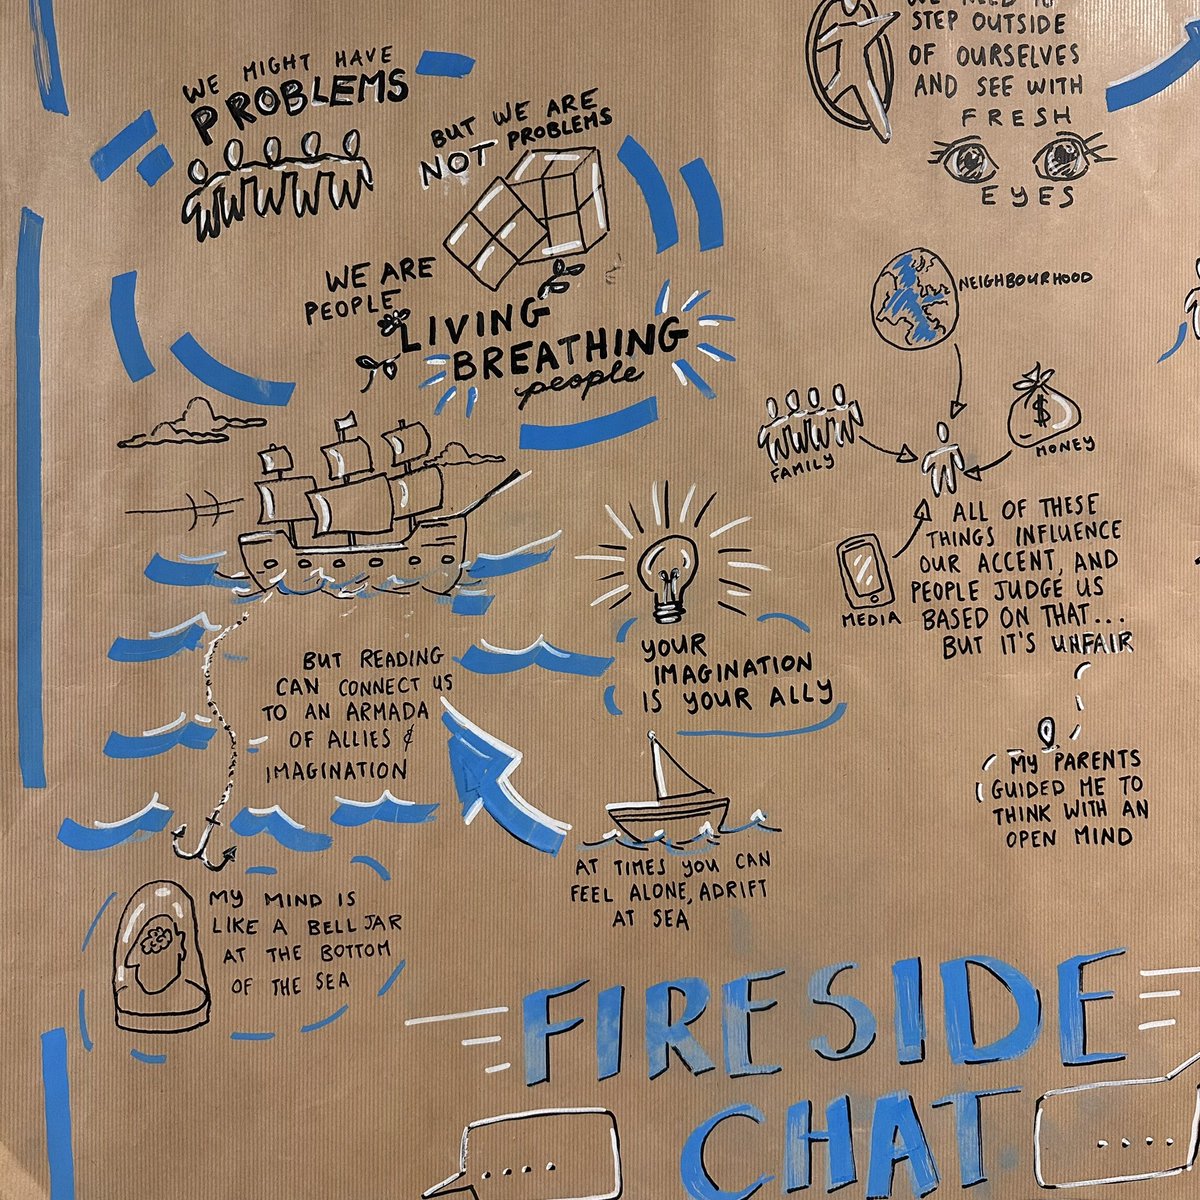 WE MIGHT HAVE
PROBLEMS
BUT WE ARE
NOT PROBLEMS
WE ARE
PEOPLE
LIVING
BREATHING
people
STEP OUTSIDE
OF OURSELVES
AND SEE WITH
FRESH
EYES
NEIGHBOURHOOD
FAMILY
$
MONEY
MEDIA
ALL OF THESE
THINGS INFLUENCE
OUR ACCENT, AND
PEOPLE JUDGE US
BASED ON THAT...
BUT IT'S UNFAIR
MY PARENTS
GUIDED ME TO
THINK WITH AN
OPEN MIND
YOUR
IMAGINATION
IS YOUR ALLY
BUT READING
CAN CONNECT US
TO AN ARMADA
OF ALLIES &
IMAGINATION
AT TIMES YOU CAN
FEEL ALONE, ADRIFT
AT SEA
MY MIND IS
LIKE A BELL JAR
AT THE BOTTOM
OF THE SEA
FIRESIDE
CHAT